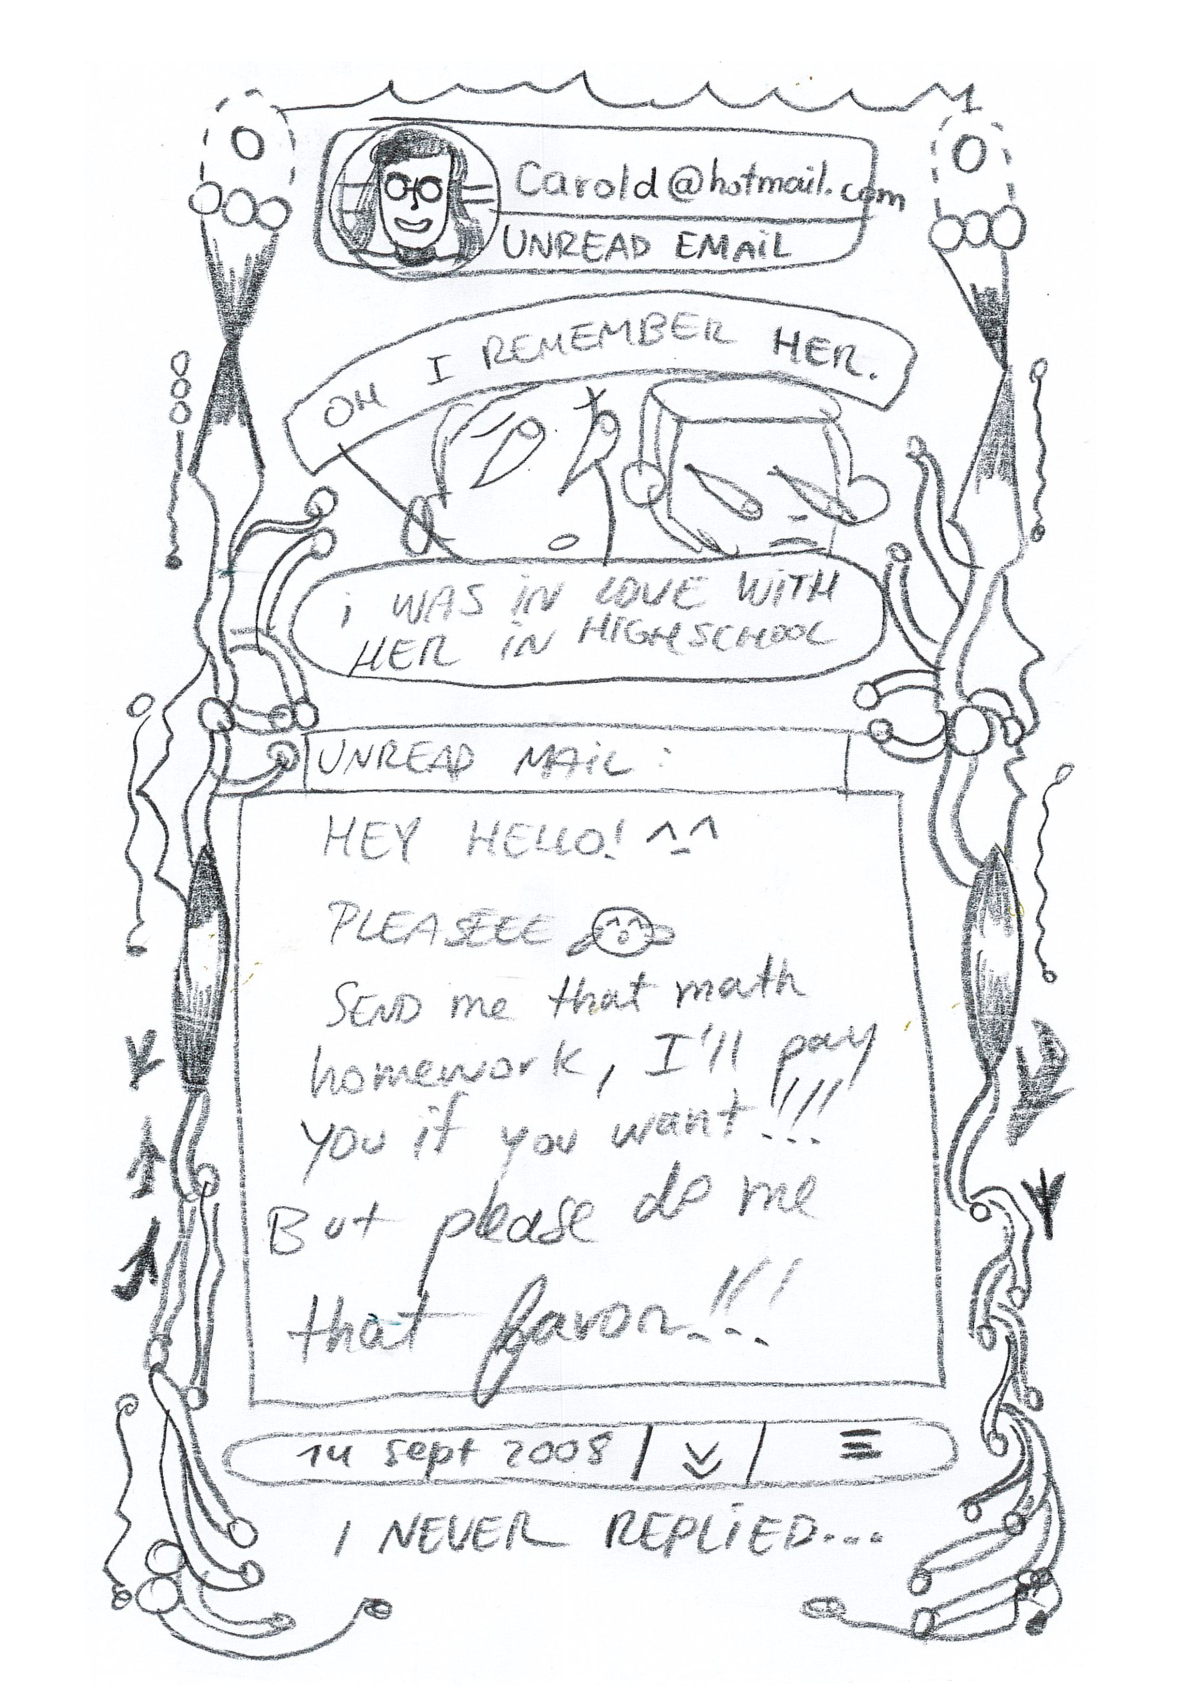 Carold@hotmail.com
UNREAD EMAiL
OH I REMEMBER HER.
i WAS iN LOVE WiTH
HER iN HIGHSCHOOL
UNREAD MAiL:
HEY HELLO! ^_^
PLEASEEE
SEND me that math
homework, I'll pay
you if you want!!!
But please do me
that favor!!!
14 sept 2008
I NEVER REPLiED...